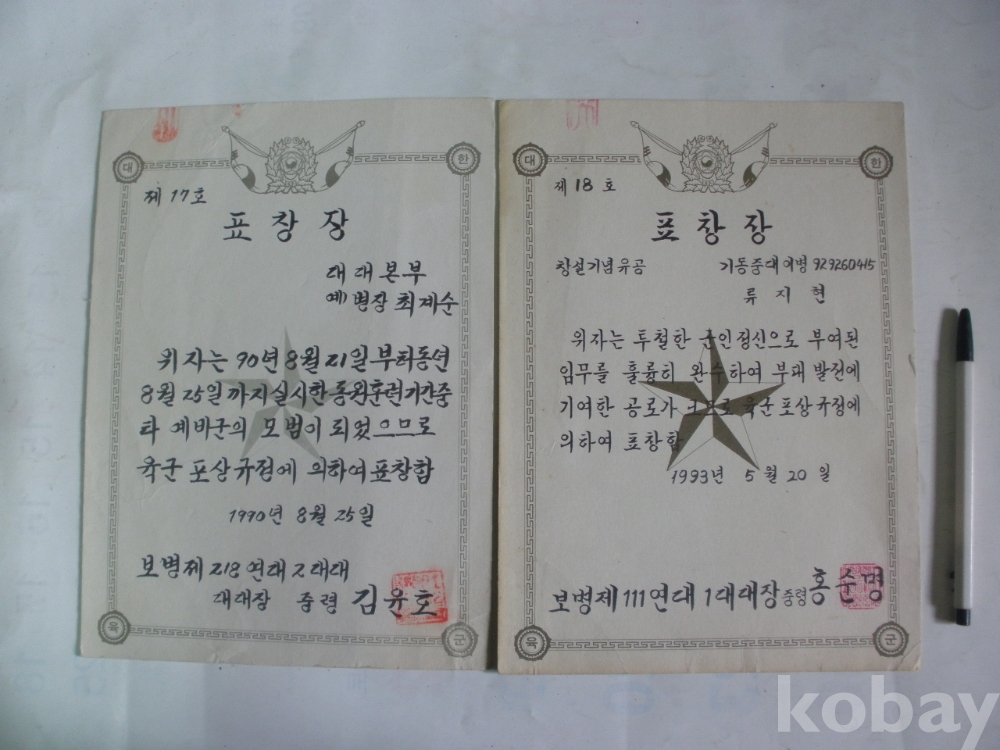 대 한
제 17 호
표 창 장
대대본부
예) 병장 최계순
위 자는 90년 8월 21일 부터 동년
8월 25일 까지 실시한 동원훈련기간중
타 예비군의 모범이 되었으므로
육군 포상규정에 의하여 표창함
1990년 8월 25일
보병제 218 연대 2 대대
대대장 중령 김윤호
육 군
대 한
제 18 호
표 창 장
창설기념유공 기동중대 이병 929260415
류 지 현
위자는 투철한 군인정신으로 부여된
임무를 훌륭히 완수하여 부대 발전에
기여한 공로가 크므로 육군 포상규정에
의하여 표창함
1993년 5월 20일
보병제 111연대 1대대장 중령 홍준명
육 군
kobay